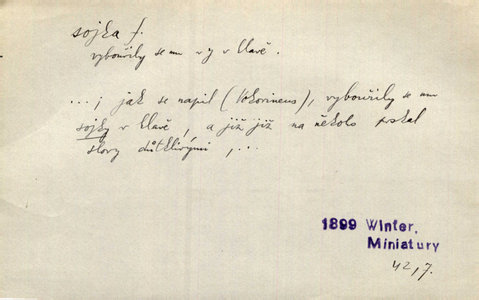 sojka f.
vybouřily se mu v hlavě.
...; jak se napil (Vokorineus), vybouřily se mu
sojky v hlavě, a již již na někoho prskal
slovy důtklivými,...
1899 Winter,
Miniatury
42,7.